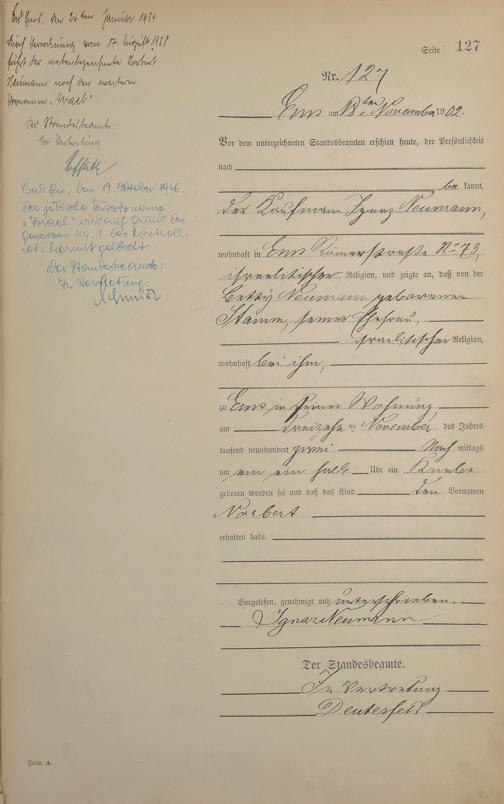 Bad Ems, den 20ten Januar 1939
Durch Verordnung vom 17. August 1938
führt der nebenbezeichnete Norbert
Neumann noch den weiteren
Vornamen „Israel“
Der Standesbeamte
In Vertretung
Bad Ems, den 19. Oktober 1946.
Der jüdische Zusatzname
„Israel“ wird auf Grund des
Gesetzes Nr. 1 des Kontroll-
rats hiermit gelöscht.
Der Standesbeamte:
In Vertretung:
Schmidt
Seite 127
Nr. 127
Ems am ten November 1902.
Vor dem unterzeichneten Standesbeamten erschien heute, der Persönlichkeit
nach
be kannt,
der Kaufmann Ignaz Neumann,
wohnhaft in Ems Römerstraße No 73,
israelitischer Religion, und zeigte an, daß von der
Betty Neumann geborenen
Stamm, seiner Ehefrau,
israelitischer Religion,
wohnhaft bei ihm,
zu Ems in seiner Wohnung,
am dreizehn ten November des Jahres
tausend neunhundert zwei Nach mittags
um ein ein halb Uhr ein Knabe
geboren worden sei und daß das Kind den Vornamen
Norbert
erhalten habe.
Vorgelesen, genehmigt und unterschrieben.
Ignaz Neumann
Der Standesbeamte.
In Vertretung
Form. A.